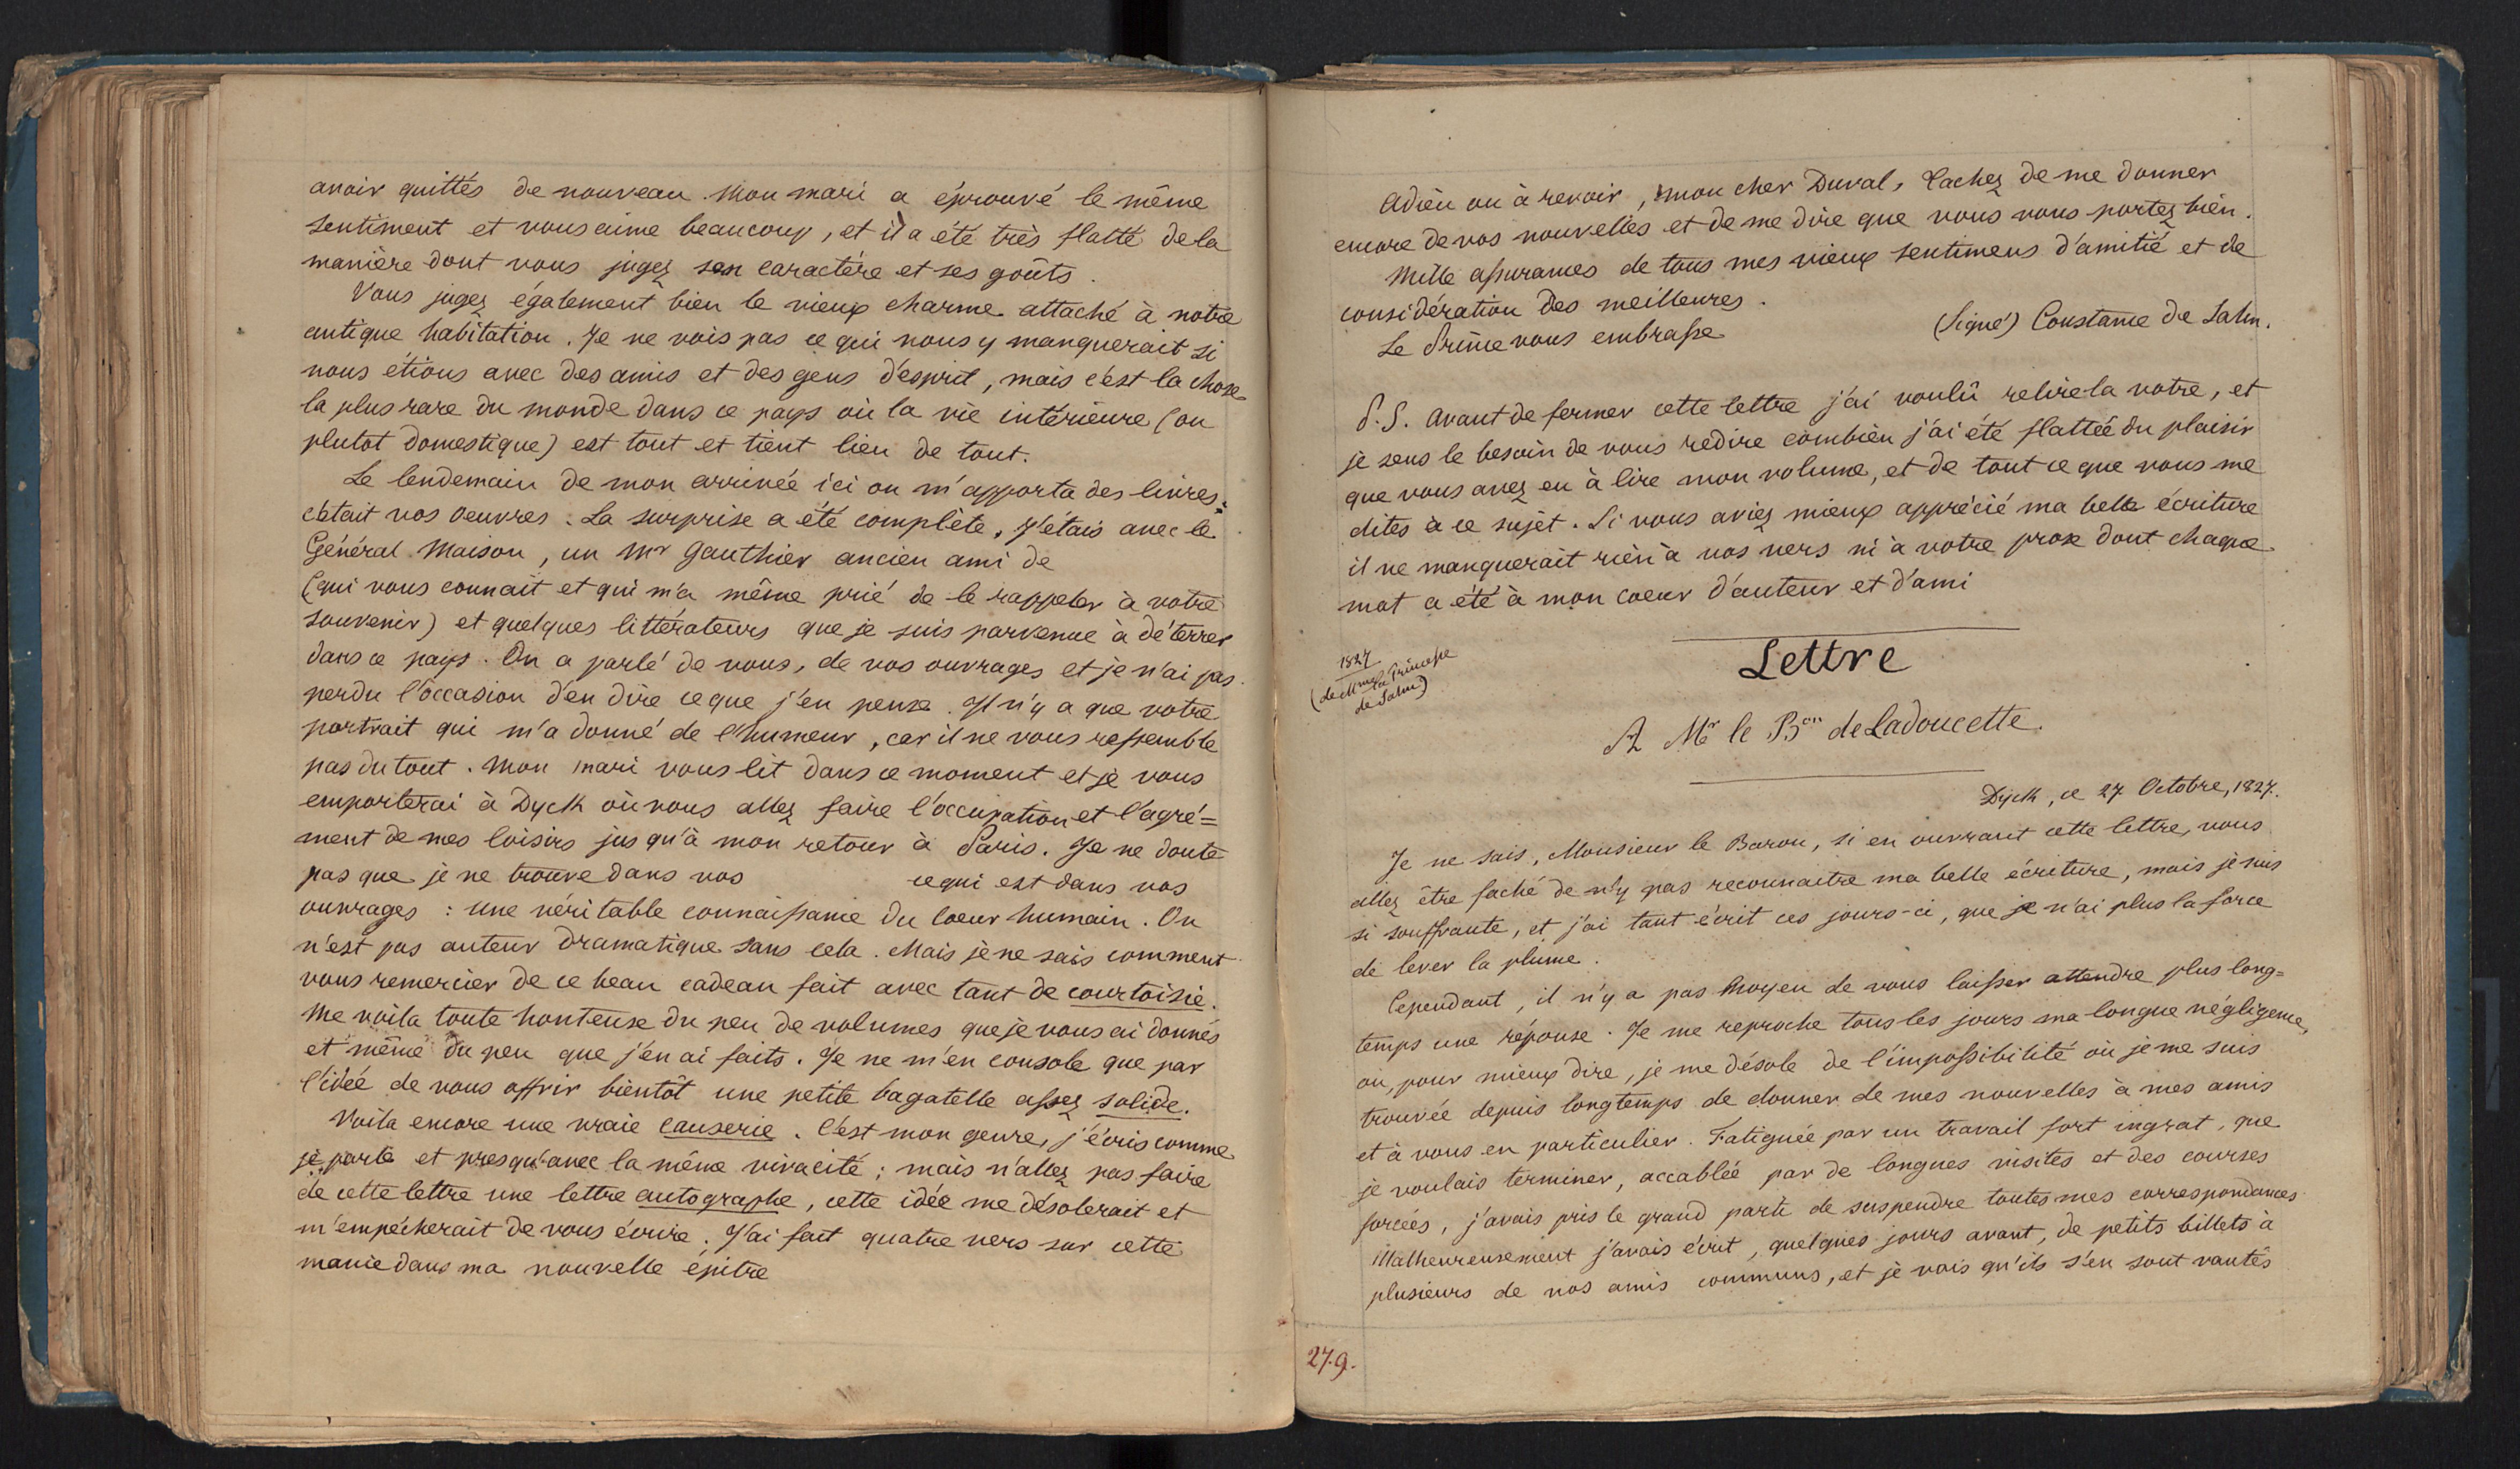 avoir quittés de nouveau. Mon mari a éprouvé le même
sentiment et vous aime beaucoup, et il a été très flatté de la
manière dont vous jugez son caractère et ses goûts.
Vous jugez également bien le vieux charme attaché à notre
antique habitation. Je ne vois pas ce qui nous y manquerait si
nous étions avec des amis et des gens d'esprit, mais c'est la chose
la plus rare du monde dans ce pays où la vie intérieure (ou
plutot domestique) est tout et tient lieu de tout.
Le lendemain de mon arrivée ici on m'apporta des livres:
c'était vos oeuvres. La surprise a été complète, j'étais avec le
Général Maison, un Mr Gauthier ancien ami de
(qui vous connait et qui m'a même prié de le rappeler à votre
souvenir) et quelques littérateurs que je suis parvenue à déterrer
dans ce pays. On a parlé de vous, de vos ouvrages et je n'ai pas
perdu l'occasion d'en dire ce que j'en pense. Il n'y a que votre
portrait qui m'a donné de l'humeur, car il ne vous ressemble
pas du tout. Mon mari vous lit dans ce moment et je vous
emporterai à Dyck où vous allez faire l'occupation et l'agré=
ment de mes loisirs jusqu'à mon retour à Paris. Je ne doute
pas que je ne trouve dans vos ce qui est dans vos
ouvrages: une véritable connaissance du coeur humain. On
n'est pas auteur dramatique sans cela. Mais je ne sais comment
vous remercier de ce beau cadeau fait avec tant de courtoisie.
Me voila toute honteuse du peu de volumes que je vous ai donnés
et même du peu que j'en ai faits. Je ne m'en console que par
l'idée de vous offrir bientôt une petite bagatelle assez solide.
Voila encore une vraie causerie. C'est mon genre, j'écris comme
je parle et presqu'avec la même vivacité; mais n'allez pas faire
de cette lettre une lettre autographe, cette idée me désolerait et
m'empêcherait de vous écrire. J'ai fait quatre vers sur cette
manie dans ma nouvelle épitre
Adieu ou à revoir, mon cher Duval, tachez de me donner
encore de vos nouvelles et de me dire que vous vous portez bien.
Mille assurances de tous mes vieux sentimens d'amitié et de
considération des meilleures.
(Signé) Constance de Salm.
Le Prince vous embrasse
P.S. Avant de fermer cette lettre j'ai voulû relire la votre, et
je sens le besoin de vous redire combien j'ai été flattée du plaisir
que vous avez eu à lire mon volume, et de tout ce que vous me
dites à ce sujèt. Si vous aviez mieux apprécié ma belle écriture
il ne manquerait rien à vos vers ni à votre prose dont chaque
mot a été à mon coeur d'auteur et d'ami
1827
(de Mme la Princesse
de Salm)
Lettre
A Mr le Bon de Ladoucette.
Dyck, ce 27 Octobre, 1827.
Je ne sais, Monsieur le Baron, si en ouvrant cette lettre, vous
allez être faché de n'y pas reconnaitre ma belle écriture, mais je suis
si souffrante, et j'ai tant écrit ces jours-ci, que je n'ai plus la force
de lever la plume.
Cependant, il n'y a pas moyen de vous laisser attendre plus long=
temps une réponse. Je me reproche tous les jours ma longue négligence,
ou, pour mieux dire, je me désole de l'impossibilité où je me suis
trouvée depuis longtemps de donner de mes nouvelles à mes amis
et à vous en particulier. Fatiguée par un travail fort ingrat, que
je voulais terminer, accablée par de longues visites et des courses
forcées, j'avais pris le grand parti de suspendre toutes mes correspondances
Malheureusement j'avais écrit, quelques jours avant, de petits billets à
plusieurs de nos amis communs, et je vois qu'ils s'en sont vantés
279.